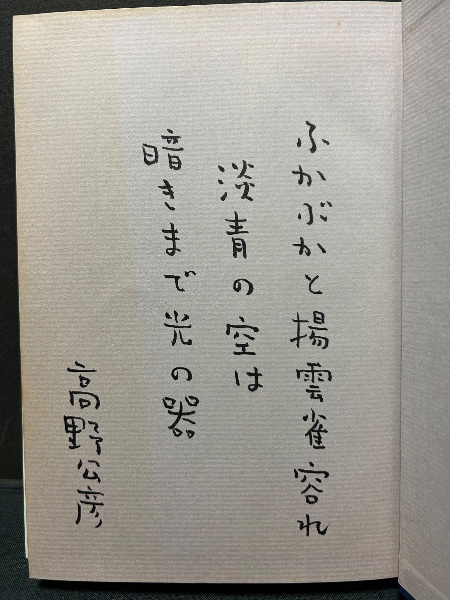 ふかぶかと揚雲雀容れ
淡青の空は
暗きまで光の器
高野公彦